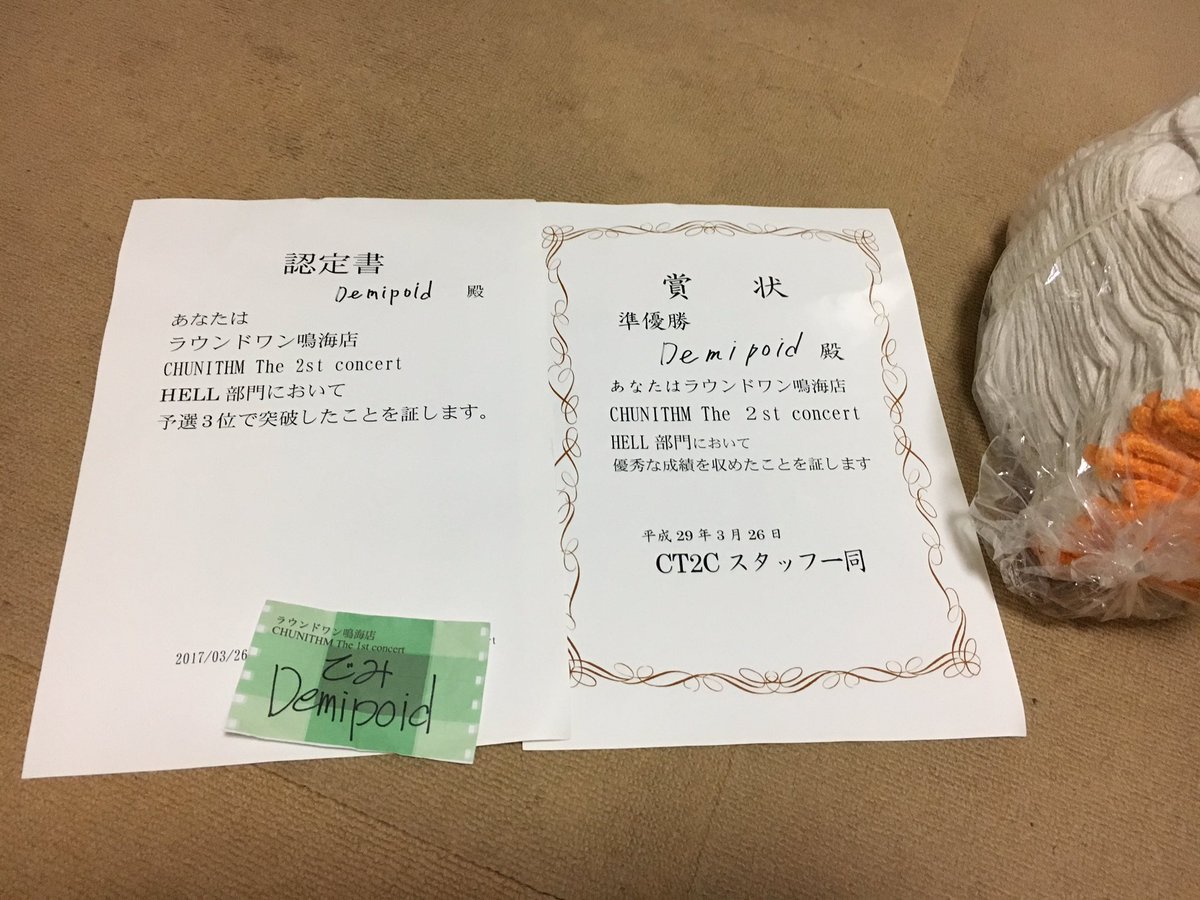 認定書
Demipoid 殿
あなたは
ラウンドワン鳴海店
CHUNITHM The 2st concert
HELL 部門において
予選3位で突破したことを証します。
2017/03/26
ラウンドワン鳴海店
CHUNITHM The 1st concert
でみ
Demipoid
賞 状
準優勝
Demipoid 殿
あなたはラウンドワン鳴海店
CHUNITHM The 2st concert
HELL 部門において
優秀な成績を収めたことを証します
平成 29 年 3 月 26 日
CT2C スタッフ一同